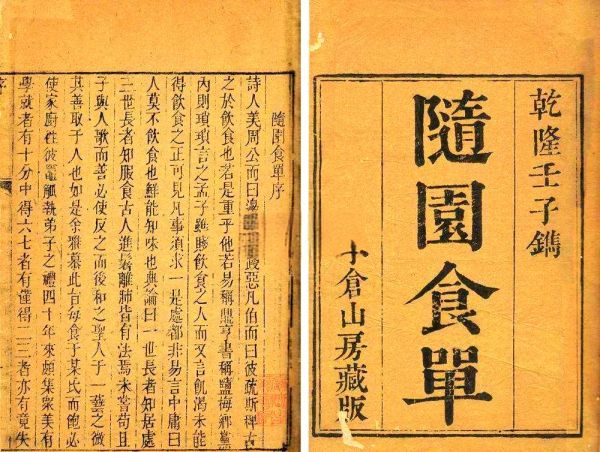 乾隆壬子鐫
隨園食單
小倉山房藏版
隨園食單序
詩人美周公而曰籩踐惡凡伯而曰彼疏斯稗古
之於飲食也若是重乎他若易稱鼎亨書稱鹽梅鄉黨
內則瑣瑣言之孟子雖賤飲食之人而又言飢渴未能
得飲食之正可見凡事須求一是處都非易言中庸曰
人莫不飲食也鮮能知味也典論曰一世長者知居處
三世長者知服食古人進鬐離肺皆有法焉未嘗苟且
子與人歌而善必使反之而後和之聖人于一藝之微
其善取于人也如是余雅慕此旨每食于某氏而飽必
使家廚往彼竈觚執弟子之禮四十年來頗集眾美有
學就者有十分中得六七者有僅得二三者亦有竟失